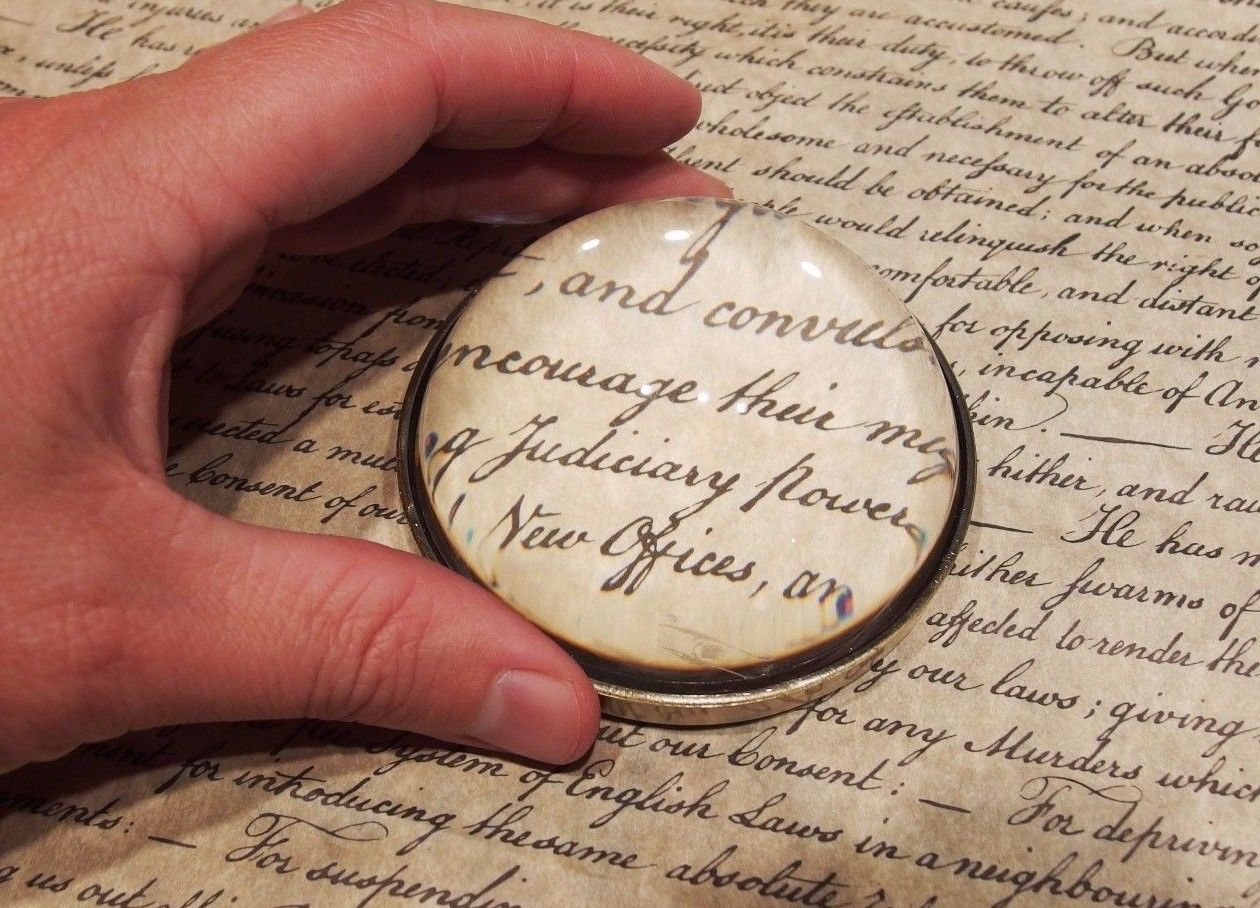 causes; and accordi
which they are accustomed. But when
injuries it is their right, it is their duty, to throw off such Go
He has necessity which constrains them to alter their
unless object the establishment of an abso
wholesome and necessary for the public
ment should be obtained; and when so
ple would relinquish the right of
omfortable, and distant
be elected; for opposing with
invasion from , and convuls , incapable of An
to pass ncourage their mig hin. — He
to Laws for est g Judiciary Power hither, and rai
erected a mul New Offices, an — He has m
e Consent of our hither swarms of
affected to render the
y our laws; giving
for any Murders which
ut our Consent: — For deprivin
free System of English Laws in a neighbourin
ment for introducing the same absolute
ments: — For suspendin
g us out